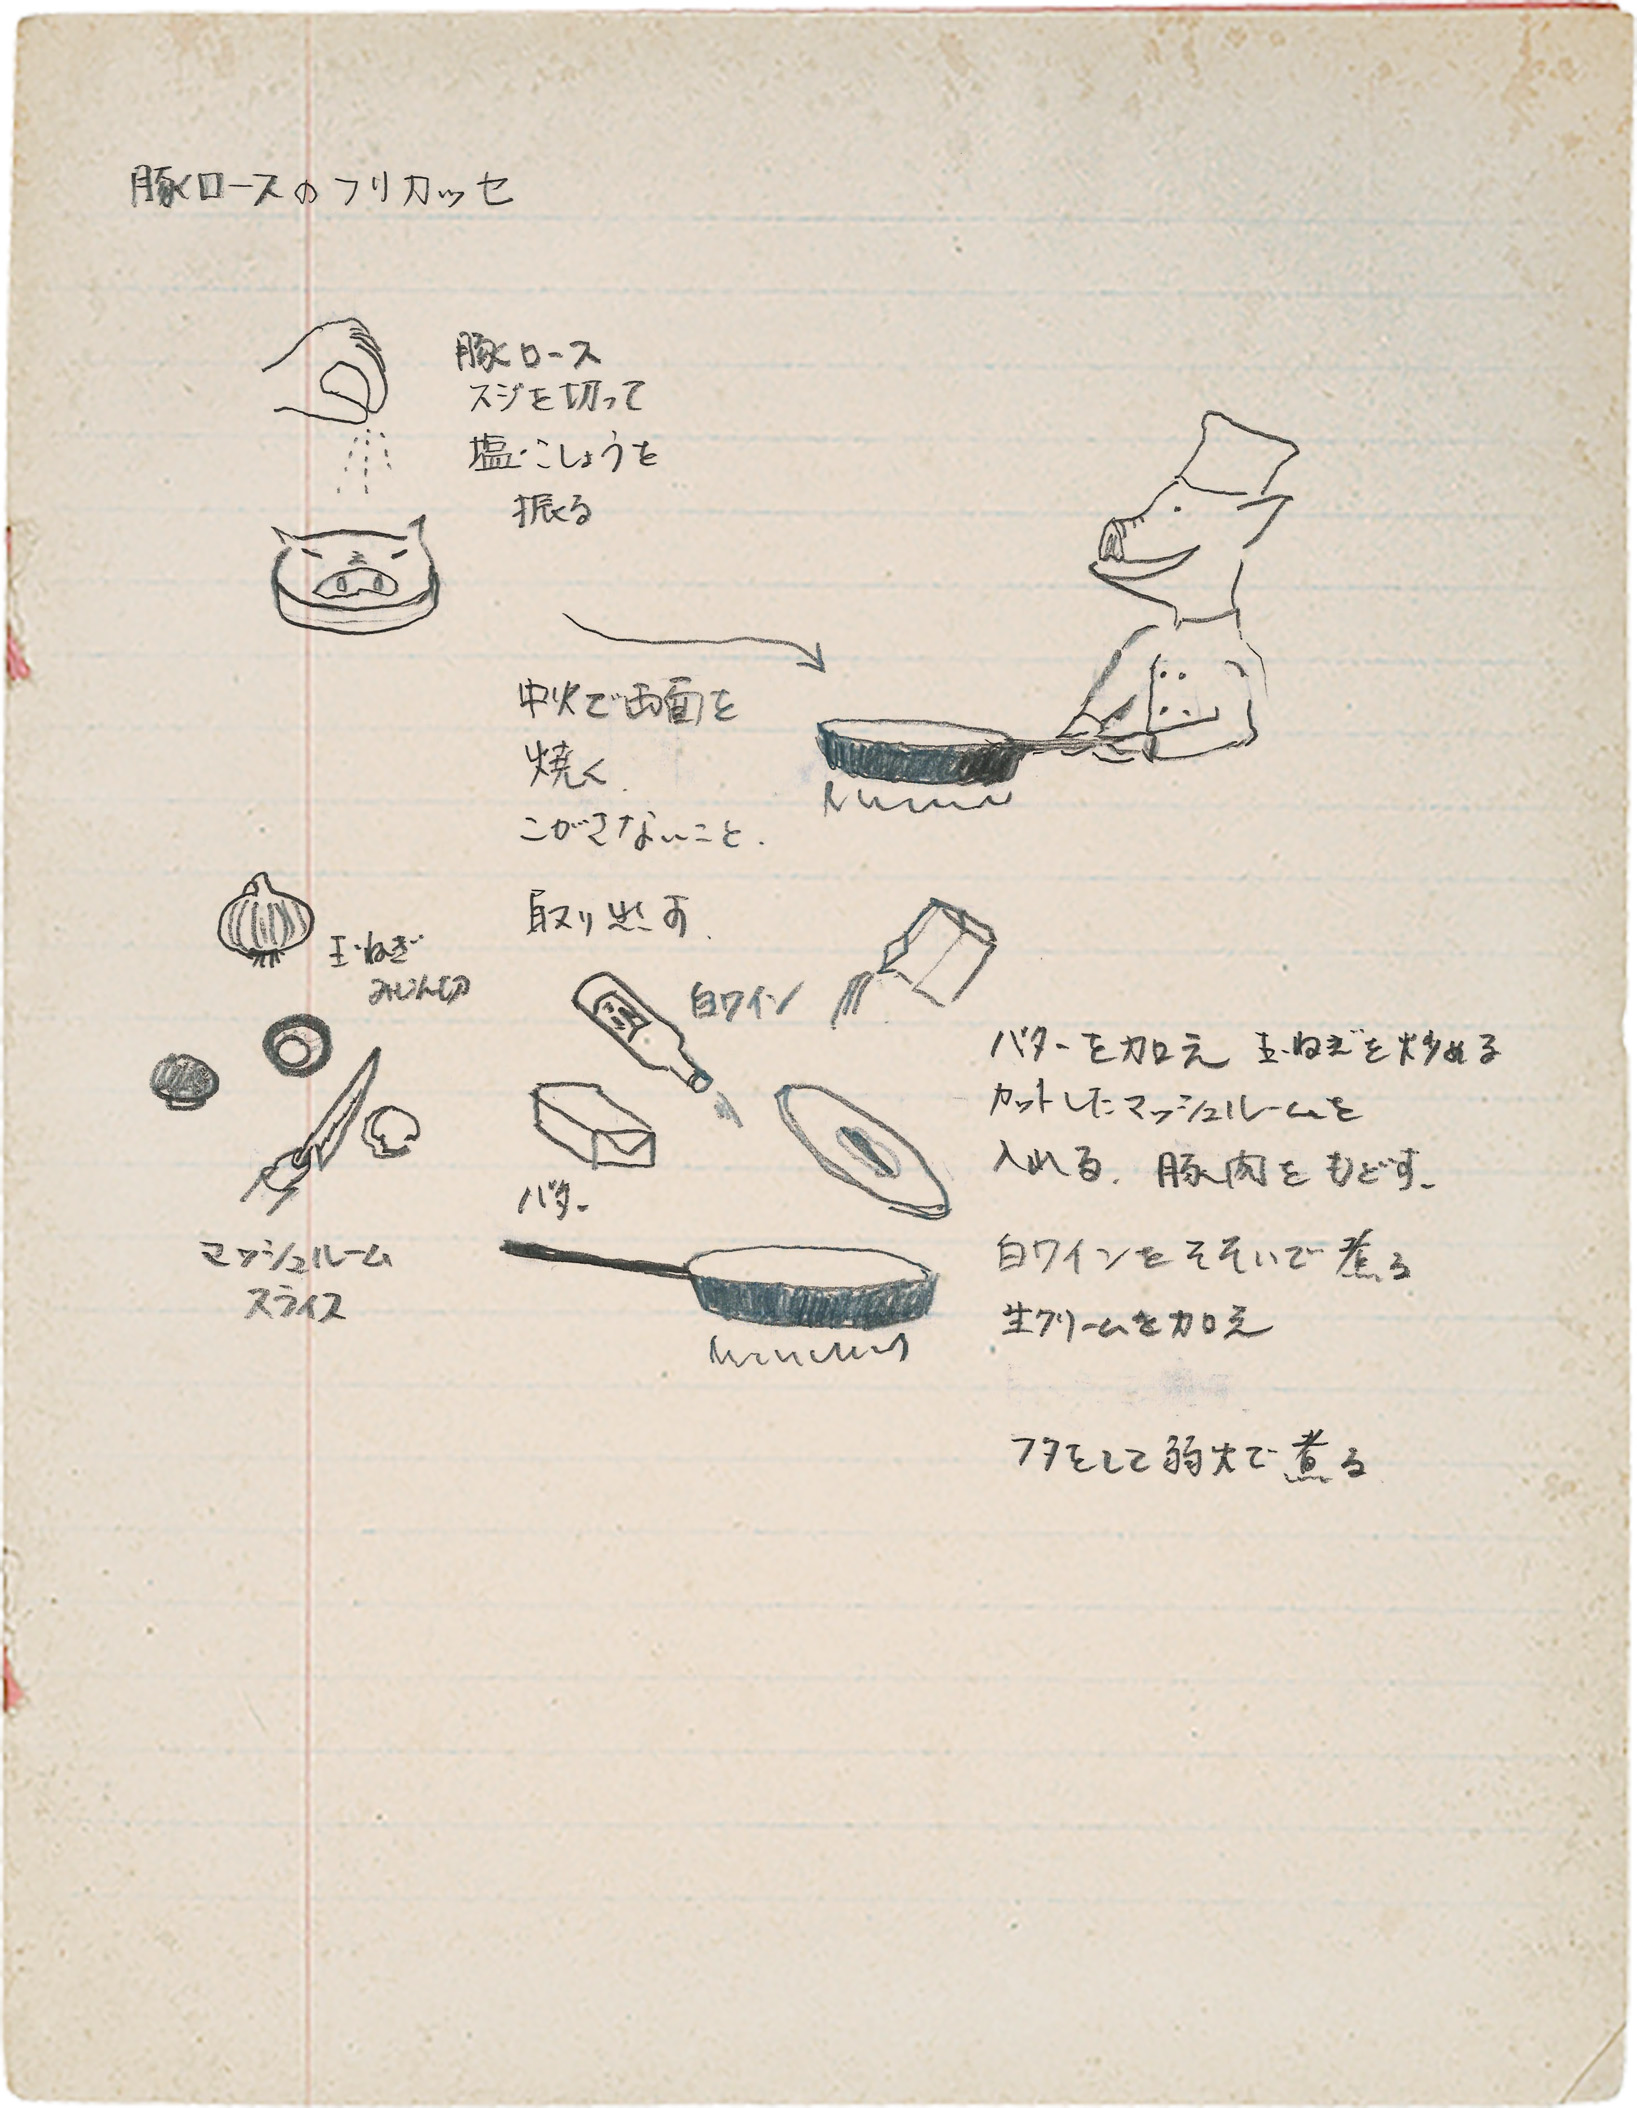 豚ロースのフリカッセ
豚ロース
スジを切って
塩・こしょうを
振る
中火で両面を
焼く.
こがさないこと.
取り出す.
玉ねぎ
みじん切
白ワイン
バター
マッシュルーム
スライス
バターを加え 玉ねぎを炒める
カットしたマッシュルームを
入れる. 豚肉をもどす.
白ワインをそそいで煮る
生クリームを加え
フタをして弱火で煮る